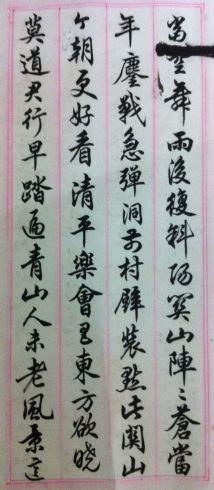 當空舞雨後復斜陽關山陣〻蒼當
年鏖戰急彈洞前村壁裝點此關山
今朝更好看清平樂會昌東方欲曉
莫道君行早踏遍青山人未老風景這